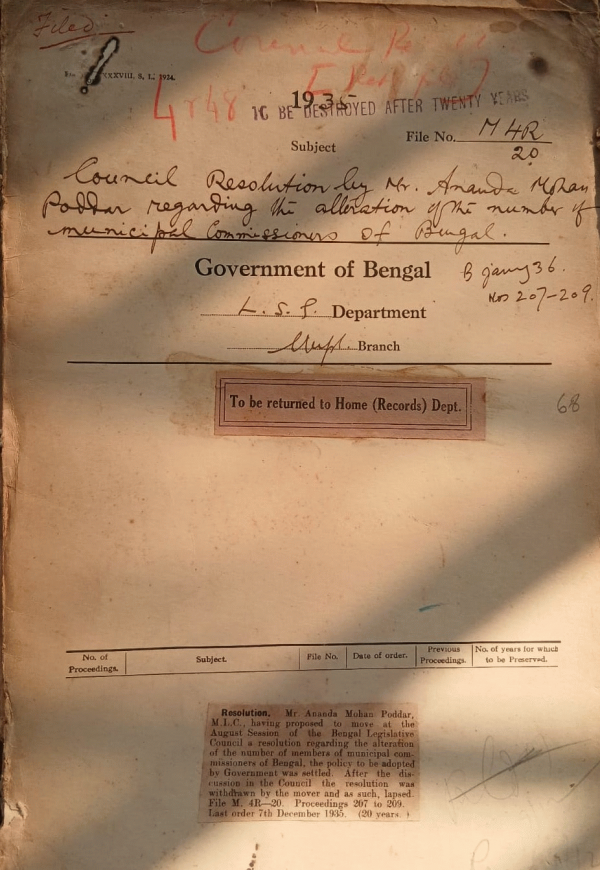 Filed
Council
XXXVIII. S. I., 1924.
1935
4 r 48 TO BE DESTROYED AFTER TWENTY YEARS
File No. M 4R
20
Subject
Council Resolution by Mr. Ananda Mohan
Poddar regarding the alteration of the number of
municipal Commissioners of Bengal.
Government of Bengal
B Jany 36.
Nos 207-209.
L. S. G. Department
Branch
To be returned to Home (Records) Dept.
68
No. of Proceedings. Subject. File No. Date of order. Previous Proceedings. No. of years for which to be Preserved.
Resolution. Mr Ananda Mohan Poddar,
M.L.C., having proposed to move at the
August Session of the Bengal Legislative
Council a resolution regarding the alteration
of the number of members of municipal com-
missioners of Bengal, the policy to be adopted
by Government was settled. After the dis-
cussion in the Council the resolution was
withdrawn by the mover and as such, lapsed.
File M. 4R—20. Proceedings 207 to 209.
Last order 7th December 1935. (20 years.)